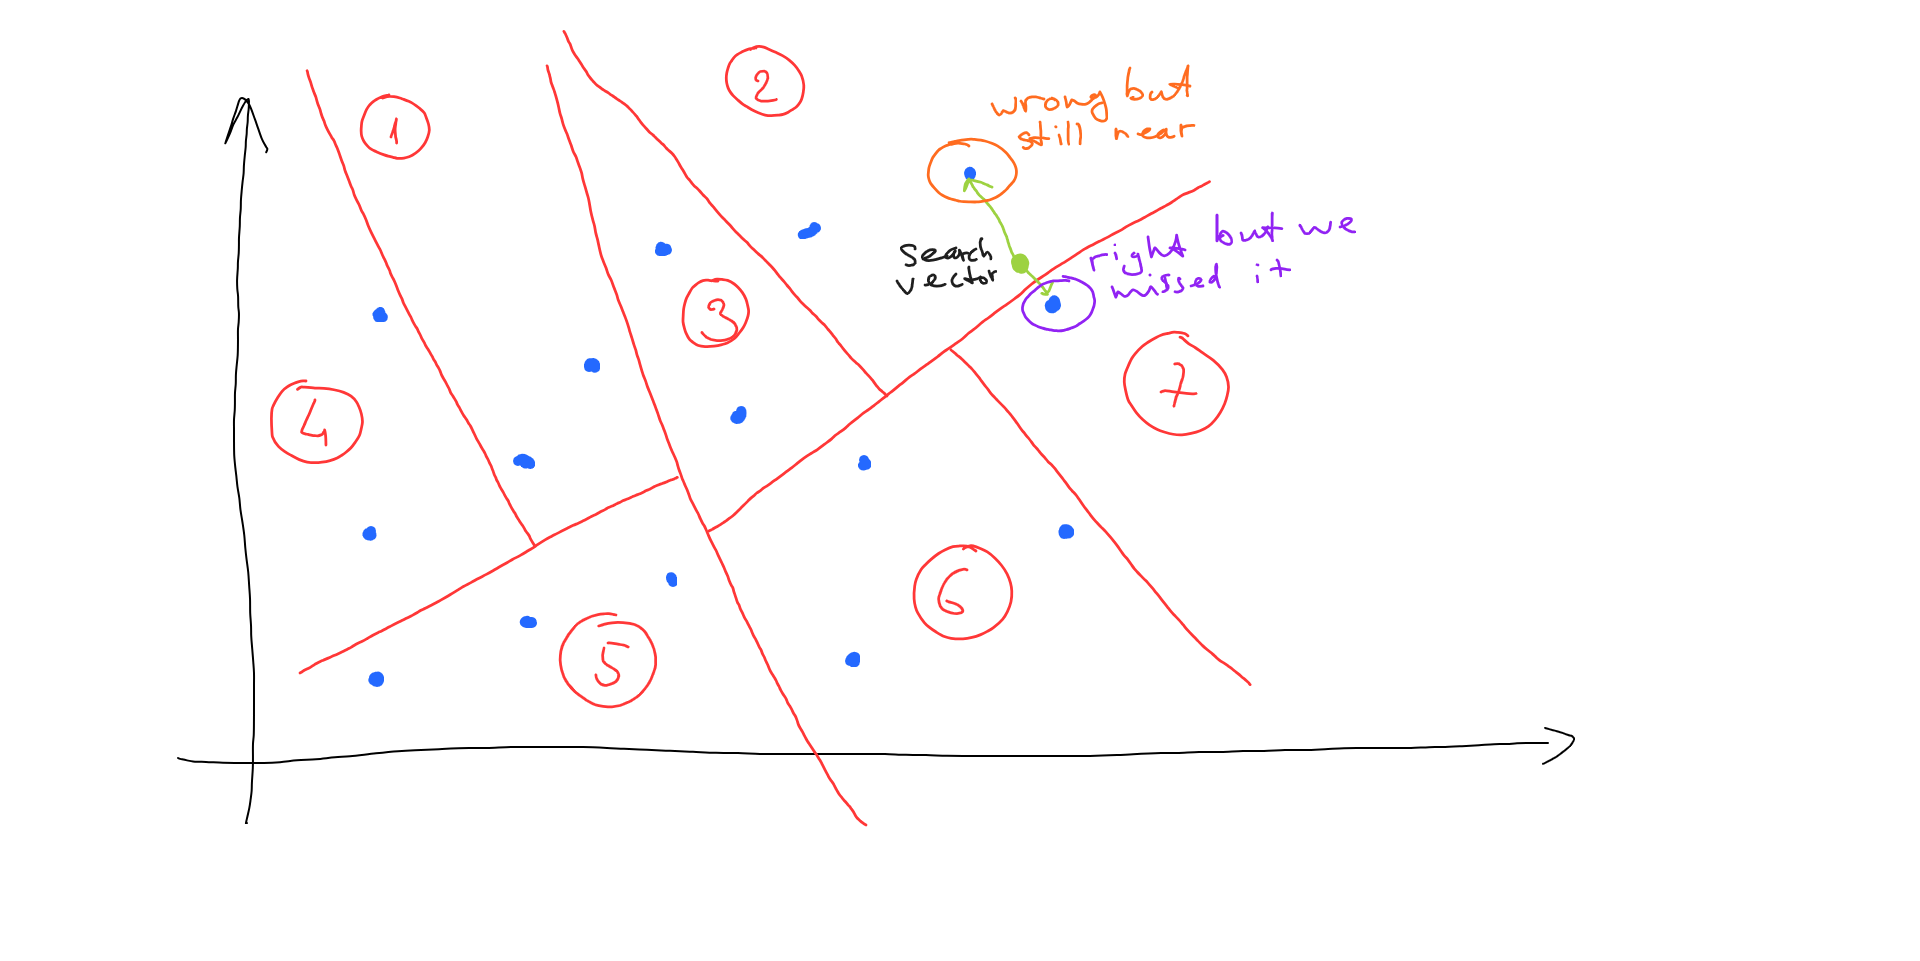 1
2
wrong but
still near
Search
vector
right but we
missed it
3
4
7
5
6